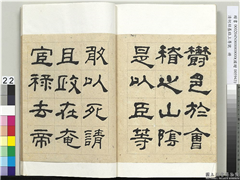 鬱邑於會
稽之山陰
是以臣等
敢以死請
且政在奄
宦祿去帝
22